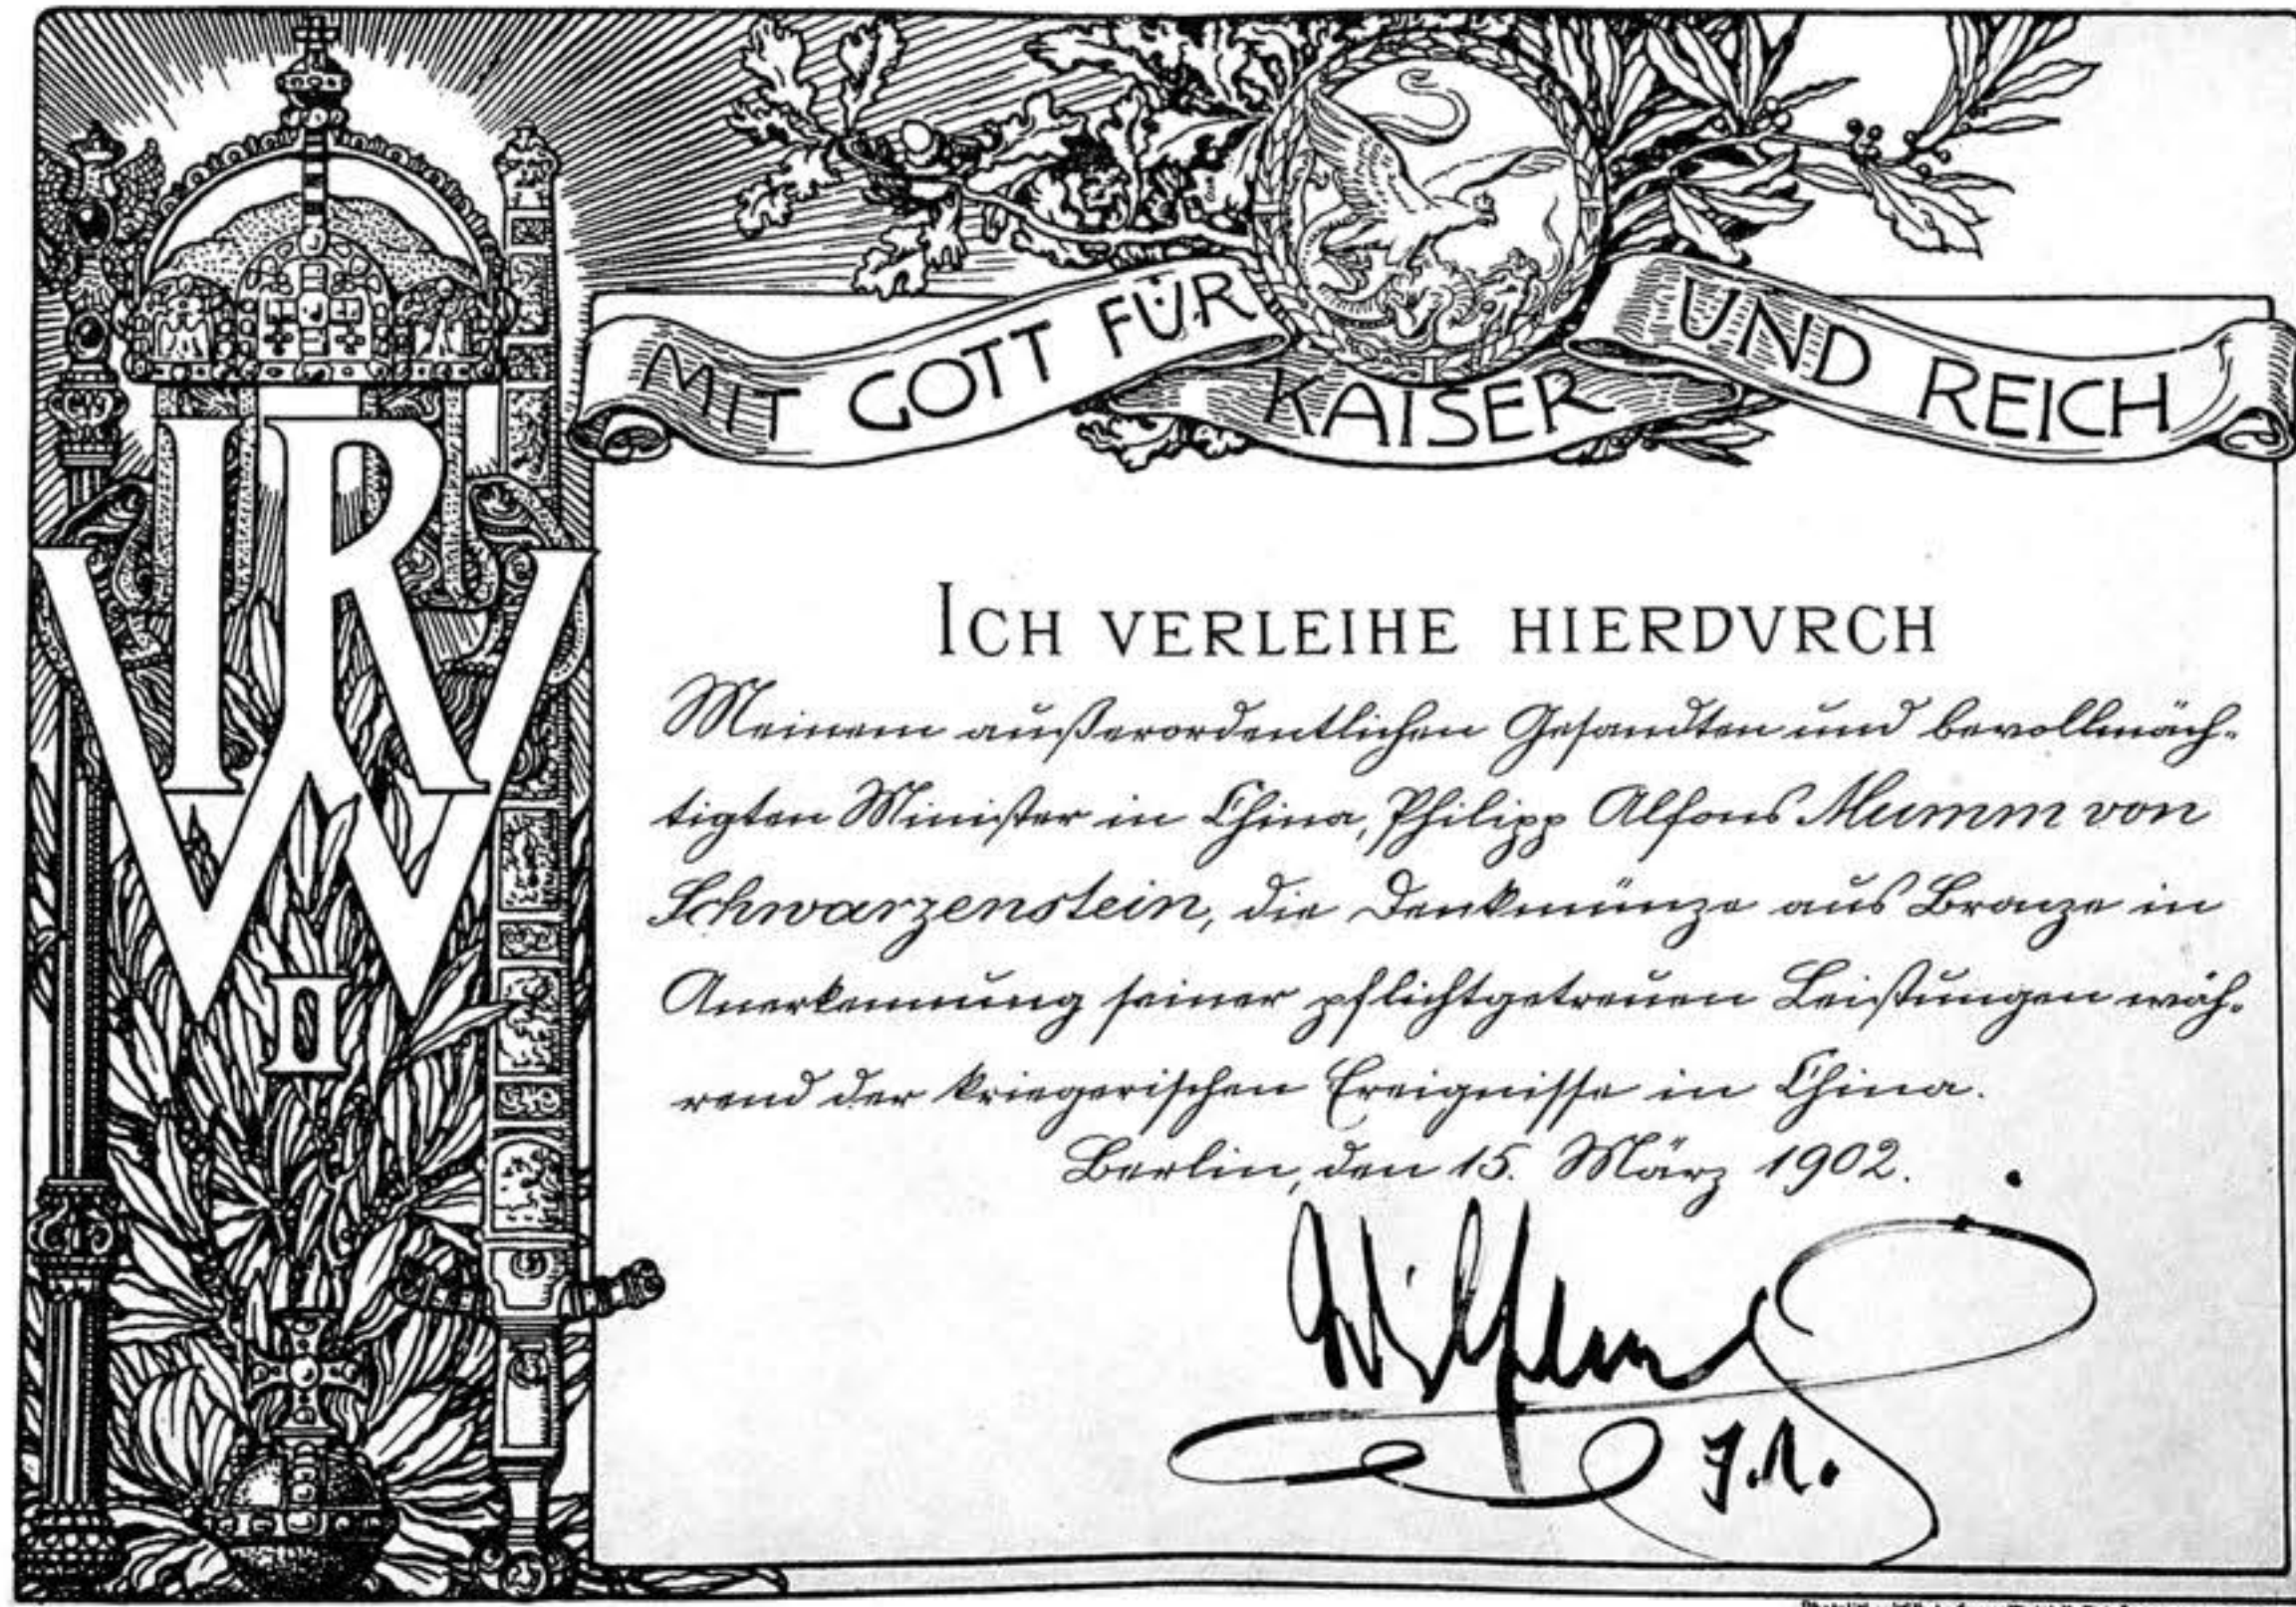 MIT GOTT FÜR KAISER UND REICH
IR
W
II
ICH VERLEIHE HIERDVRCH
Meinem außerordentlichen Gesandten und bevollmäch-
tigten Minister in China, Philipp Alfons Mumm von
Schwarzenstein, die Denkmünze aus Bronze in
Anerkennung seiner pflichtgetreuen Leistungen wäh-
rend der kriegerischen Ereignisse in China.
Berlin, den 15. März 1902.
Wilhelm
I.R.